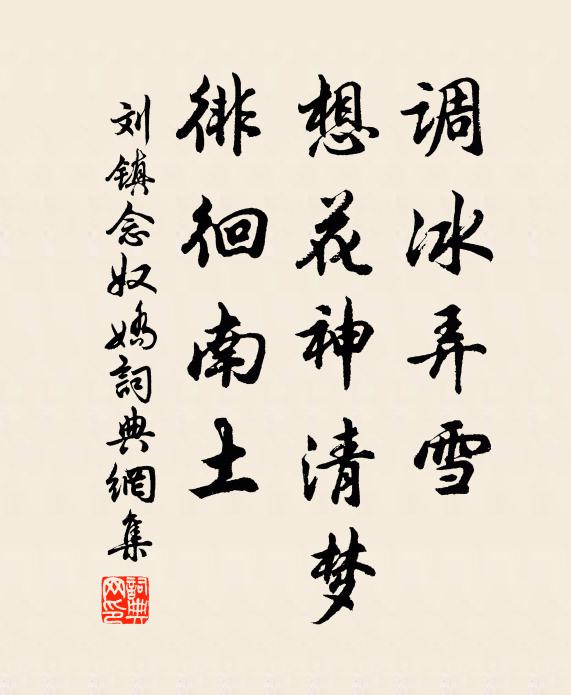 调冰弄雪
想花神清梦
徘徊南土
刘镇念奴娇詞典網集
詞典
网印